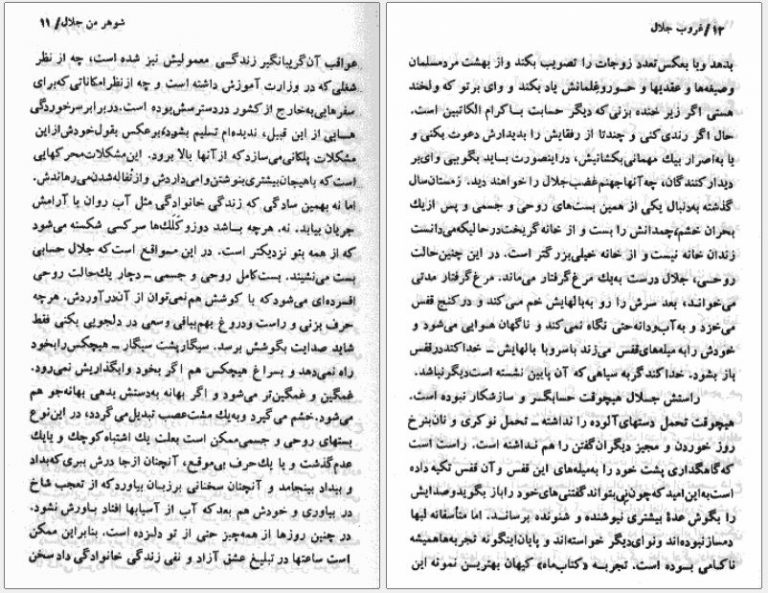 شوهر من جلال/ ۱۱
عواقب آن گریبانگیر زندگی معمولیش نیز شده است، چه از نظر
شغلی که در وزارت آموزش داشته است و چه ازنظر امکاناتی که برای
سفرهایی به‌خارج از کشور در دسترسش بوده است. در برابر سرخوردگی
هایی از این قبیل، ندیده‌ام تسلیم بشود، برعکس بقول خودش ازاین
مشکلات پلکانی می‌سازد که ازآنها بالا برود. این مشکلات محرکهایی
است که باهیجان بیشتری بنوشتن وامی‌داردش و ازتفاله شدن می‌رهاندش.
اما نه بهمین سادگی که زندگی خانوادگی مثل آب روان با آرامش
جریان بیابد. نه. هرچه باشد دوزوکلک‌ها سرکسی شکسته می‌شود
که از همه بتو نزدیکتر است. در این مواقع است که جلال حسابی
بست می‌نشیند. بست‌کامل روحی و جسمی ــ دچار یك‌حالت روحی
افسرده‌ای می‌شود که با کوشش هم نمی‌توان از آن درآوردش. هرچه
حرف بزنی و راست ودروغ بهم‌ببافی وسعی در دلجویی بکنی فقط
شاید صدایت بگوشش برسد. سیگار پشت سیگار ــ هیچکس رابخود
راه نمی‌دهد و بسراغ هیچکس هم اگر بخود واگذاریش نمی‌رود.
غمگین و غمگین‌تر می‌شود و اگر بهانه به‌دستش بدهی بهانه‌جو هم
می‌شود. خشم می‌گیرد وبه‌یك مشت عصب تبدیل می‌گردد، در این‌نوع
بستهای روحی و جسمی‌ممکن است بعلت یك اشتباه‌کوچك و یایك
عدم‌گذشت و یا یك حرف بی‌موقع، آنچنان ازجا درش ببری که‌بداد
و بیداد بینجامد و آنچنان سخنانی برزبان بیاورد که از تعجب شاخ
در بیاوری و خودش هم بعد که آب از آسیابها افتاد باورش نشود.
در چنین روزها از همه‌چیز حتی از تو دلزده است. بنابراین ممکن
است ساعتها در تبلیغ عشق آزاد و نفی زندگی خانوادگی داد سخن
۱۲/غروب جلال
بدهد ویا بعکس تعدد زوجات را تصویب بکند واز بهشت مردمسلمان
وصیغه‌ها و عقدیها و حوروغلمانش یاد بکند و وای برتو که ولخند
هستی اگر زیر خنده بزنی که دیگر حسابت باکرام الکاتبین است.
حال اگر رندی کنی و چندتا از رفقایش را بدیدارش دعوت بکنی و
یا به‌اصرار بیك مهمانی بکشانیش، دراینصورت باید بگویی وای‌بر
دیدارکنندگان، چه آنها جهنم غضب جلال را خواهند دید. زمستان سال
گذشته به‌دنبال یکی از همین بست‌های روحی و جسمی و پس ازیك
بحران خشم، چمدانش را بست و از خانه گریخت درحالیکه می‌دانست
زندان خانه نیست و از خانه خیلی بزرگتر است. در این چنین حالت
روحی، جلال درست به‌یك مرغ گرفتار می‌ماند. مرغ گرفتار مدتی
می‌خواند، بعد سرش را رو به‌بالهایش خم می‌کند و درکنج قفس
می‌خزد و به آب ودانه حتی نگاه نمی‌کند و ناگهان هوایی می‌شود و
خودش رابه میله‌های قفس می‌زند باسر ویا بالهایش ــ خدا کند در قفس
باز بشود. خدا کند گربه سیاهی که آن پایین نشسته است دیگر نباشد.
راستش جلال هیچوقت حسابگر و سازشکار نبوده است.
هیچوقت تحمل دستهای آلوده را نداشته ــ تحمل نوکری و نان‌بنرخ
روز خوردن و مجیز دیگران گفتن را هم نداشته است. راست است
که‌گاهگداری پشت خود را به‌میله‌های این قفس و آن قفس تکیه داده
است به‌این امید که‌چون نی‌بتواند گفتنی‌های خود را باز بگوید وصدایش
را بگوش عدهٔ بیشتری نیوشنده و شنونده برساند. اما متأسفانه لبها
دمساز نبوده‌اند ونوای‌دیگر خواسته‌اند و پایان اینگونه تجربه‌ها همیشه
ناکامی بوده است. تجربه «کتاب‌ماه» کیهان بهترین نمونه این